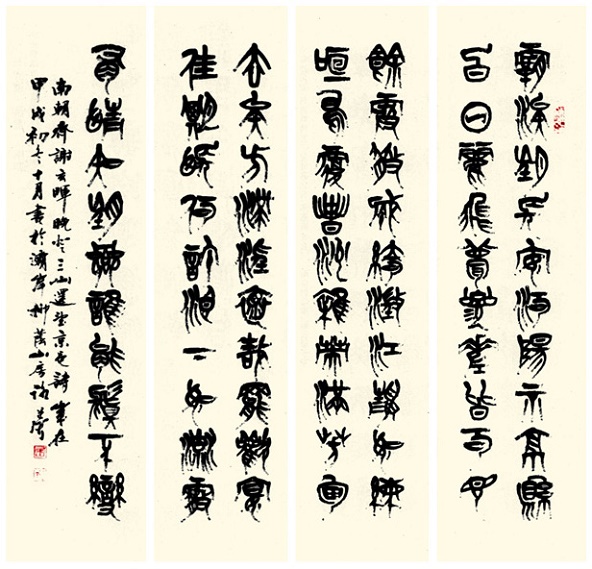 灞涘望長安河陽視京縣
白日麗飛甍參差皆可見
餘霞散成綺澂江靜如練
喧鳥覆春洲雜英滿芳甸
去矣方滯淫懷哉罷歡宴
佳期悵何許淚下如流霰
有情知望鄉誰能鬒不變
南朝齊謝玄暉晚登三山還望京邑詩歲在
甲戌初冬十月書於柳蔭山房